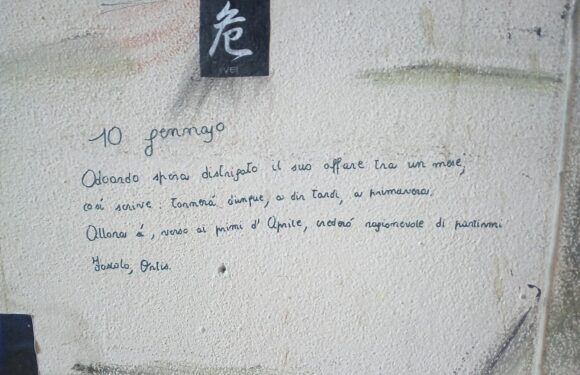 危
wei
10 gennajo
Odoardo spera distrigato il suo affare tra un mese;
così scrive: tornerà dunque, a dir tardi, a primavera.
Allora sì, verso ai primi d' Aprile, crederò ragionevole di partirmi
Foscolo, Ortis.